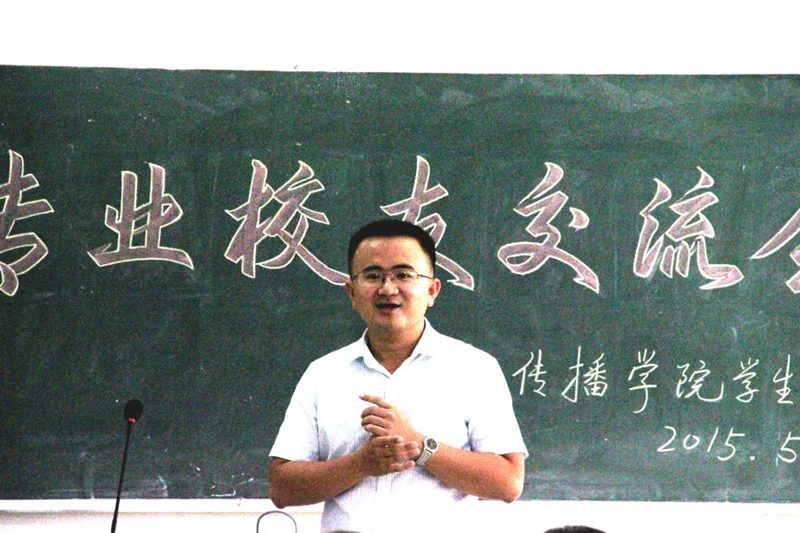 专业校友交流会
传播学院学生
2015.5